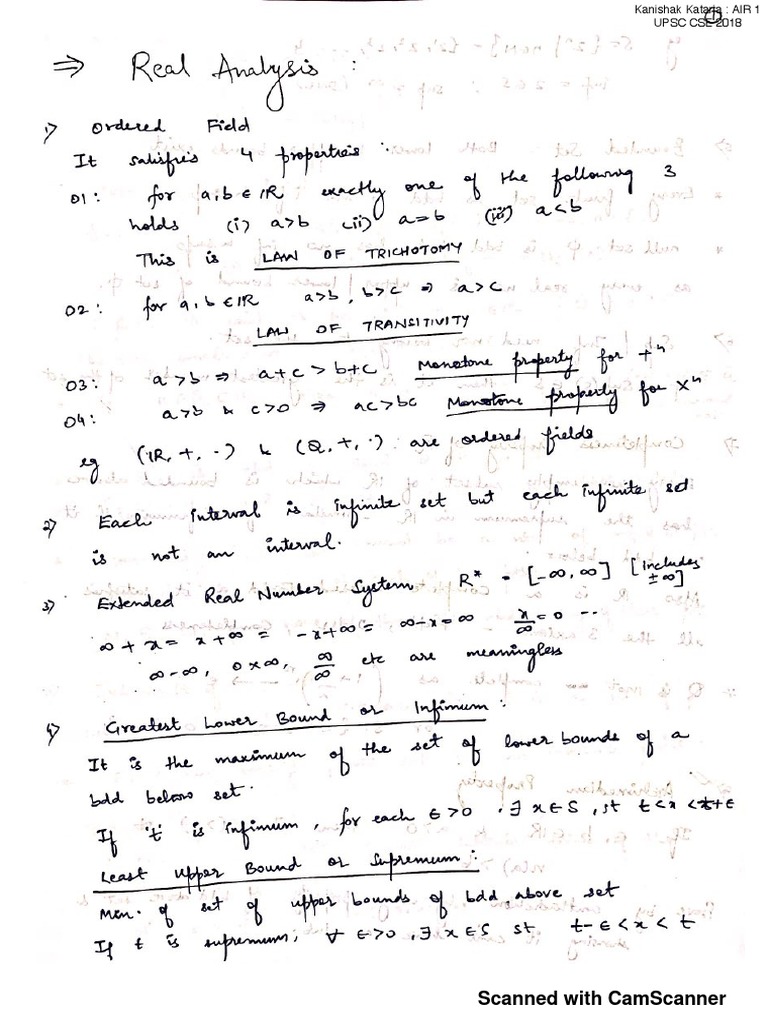 Kanishak Kataria : AIR 1
UPSC CSE 2018
①
⇒ Real Analysis :
1) Ordered Field
It satisfies 4 properties :
O1 : for a,b ∈ ℝ exactly one of the following 3
holds (i) a>b (ii) a=b (iii) a<b
This is LAW OF TRICHOTOMY
O2 : for a,b ∈ ℝ a>b , b>c ⇒ a>c
LAW OF TRANSITIVITY
O3 : a>b ⇒ a+c > b+c Monotone property for +ⁿ
O4 : a>b & c>0 ⇒ ac>bc Monotone property for ×ⁿ
eg (ℝ, +, ·) & (Q, +, ·) are ordered fields
2) Each interval is infinite set but each infinite set
is not an interval.
3) Extended Real Number System R* = [-∞, ∞] [includes ±∞]
∞ + x = x+∞ = -x+∞ = ∞-x = ∞ x/∞ = 0 ..
∞-∞, 0×∞, ∞/∞ etc are meaningless
4) Greatest Lower Bound or Infimum :
It is the maximum of the set of lower bounds of a
bdd below set.
If 't' is infimum, for each ϵ>0 , ∃ x∈S , st t<x <t+ϵ
Least Upper Bound or Supremum :
Min. of set of upper bounds of bdd above set
If t is supremum, ∀ ϵ>0 , ∃ x∈S st t-ϵ<x<t
Scanned with CamScanner